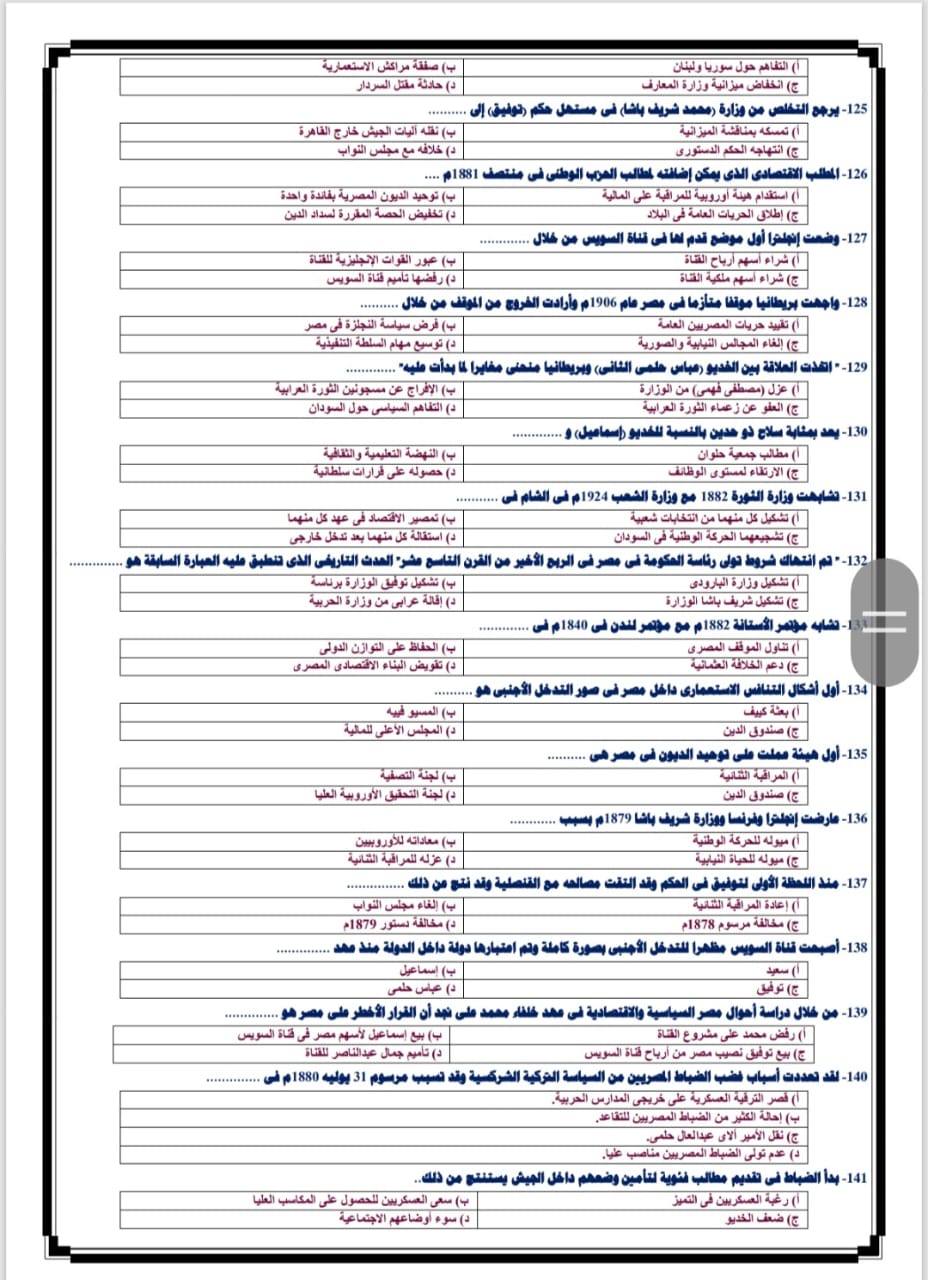 أ) التفاهم حول سوريا ولبنان ب) صفقة مراكش الاستعمارية
ج) انخفاض ميزانية وزارة المعارف د) حادثة مقتل السردار
125- يرجع التخلص من وزارة (محمد شريف باشا) فى مستهل حكم (توفيق) إلى ..........
أ) تمسكه بمناقشة الميزانية ب) نقله آليات الجيش خارج القاهرة
ج) انتهاجه الحكم الدستورى د) خلافه مع مجلس النواب
126- المطلب الاقتصادى الذى يمكن إضافته لمطالب الحزب الوطنى فى منتصف 1881م ....
أ) استقدام هيئة أوروبية للمراقبة على المالية ب) توحيد الديون المصرية بفائدة واحدة
ج) إطلاق الحريات العامة فى البلاد د) تخفيض الحصة المقررة لسداد الدين
127- وضعت إنجلترا أول موضع قدم لها فى قناة السويس من خلال .............
أ) شراء أسهم أرباح القناة ب) عبور القوات الإنجليزية للقناة
ج) شراء أسهم ملكية القناة د) رفضها تأميم قناة السويس
128- واجهت بريطانيا موقفا متأزما فى مصر عام 1906م وأرادت الخروج من الموقف من خلال ..........
أ) تقييد حريات المصريين العامة ب) فرض سياسة النجلزة فى مصر
ج) إلغاء المجالس النيابية والصورية د) توسيع مهام السلطة التنفيذية
129- " اتخذت العلاقة بين الخديو (عباس حلمى الثانى) وبريطانيا منحنى مغايرا لما بدأت عليه" .............
أ) عزل (مصطفى فهمى) من الوزارة ب) الإفراج عن مسجونين الثورة العرابية
ج) العفو عن زعماء الثورة العرابية د) التفاهم السياسى حول السودان
130- يعد بمثابة سلاح ذو حدين بالنسبة للخديو (إسماعيل) و .............
أ) مطالب جمعية حلوان ب) النهضة التعليمية والثقافية
ج) الارتقاء لمستوى الوظائف د) حصوله على قرارات سلطانية
131- تشابهت وزارة الثورة 1882 مع وزارة الشعب 1924م فى الشام فى ...........
أ) تشكيل كل منهما من انتخابات شعبية ب) تمصير الاقتصاد فى عهد كل منهما
ج) تشجيعهما الحركة الوطنية فى السودان د) استقالة كل منهما بعد تدخل خارجى
132- " تم إنتهاك شروط تولى رئاسة الحكومة فى مصر فى الربع الأخير من القرن التاسع عشر" الحدث التاريخى الذى تنطبق عليه العبارة السابقة هو .............
أ) تشكيل وزارة البارودى ب) تشكيل توفيق الوزارة برئاسة
ج) تشكيل شريف باشا الوزارة د) إقالة عرابى من وزارة الحربية
133- تشابه مؤتمر الأستانة 1882م مع مؤتمر لندن فى 1840م فى .............
أ) تناول الموقف المصرى ب) الحفاظ على التوازن الدولى
ج) دعم الخلافة العثمانية د) تقويض البناء الاقتصادى المصرى
134- أول أشكال التنافس الاستعمارى داخل مصر فى صور التدخل الأجنبى هو ..........
أ) بعثة كييف ب) المسيو فييه
ج) صندوق الدين د) المجلس الأعلى للمالية
135- أول هيئة عملت على توحيد الديون فى مصر هى ..........
أ) المراقبة الثنائية ب) لجنة التصفية
ج) صندوق الدين د) لجنة التحقيق الأوروبية العليا
136- عارضت إنجلترا وفرنسا ووزارة شريف باشا 1879م بسبب ............
أ) ميوله للحركة الوطنية ب) معاداته للأوروبيين
ج) ميوله للحياة النيابية د) عزله للمراقبة الثنائية
137- منذ اللحظة الأولى لتوفيق فى الحكم وقد التقت مصالحه مع القنصلية وقد نتج عن ذلك ..............
أ) إعادة المراقبة الثنائية ب) إلغاء مجلس النواب
ج) مخالفة مرسوم 1878م د) مخالفة دستور 1879م
138- أصبحت قناة السويس مظهرا للتدخل الأجنبى بصورة كاملة وتم اعتبارها دولة داخل الدولة منذ عهد .............
أ) سعيد ب) إسماعيل
ج) توفيق د) عباس حلمى
139- من خلال دراسة أحوال مصر السياسية والاقتصادية فى عهد خلفاء محمد على نجد أن القرار الأخطر على مصر هو .............
أ) رفض محمد على مشروع القناة ب) بيع إسماعيل لأسهم مصر فى قناة السويس
ج) بيع توفيق نصيب مصر من أرباح قناة السويس د) تأميم جمال عبدالناصر للقناة
140- لقد تعددت أسباب غضب الضباط المصريين من السياسة التركية الشركسية وقد تسبب مرسوم 31 يوليه 1880م فى .............
أ) قصر الترقية العسكرية على خريجى المدارس الحربية.
ب) إحالة الكثير من الضباط المصريين للتقاعد.
ج) نقل الأمير آلاى عبدالعال حلمى.
د) عدم تولى الضباط المصريين مناصب عليا.
141- بدأ الضباط فى تقديم مطالب فئوية لتأمين وضعهم داخل الجيش يستنتج من ذلك..
أ) رغبة العسكريين فى التميز ب) سعى العسكريين للحصول على المكاسب العليا
ج) ضعف الخديو د) سوء أوضاعهم الاجتماعية